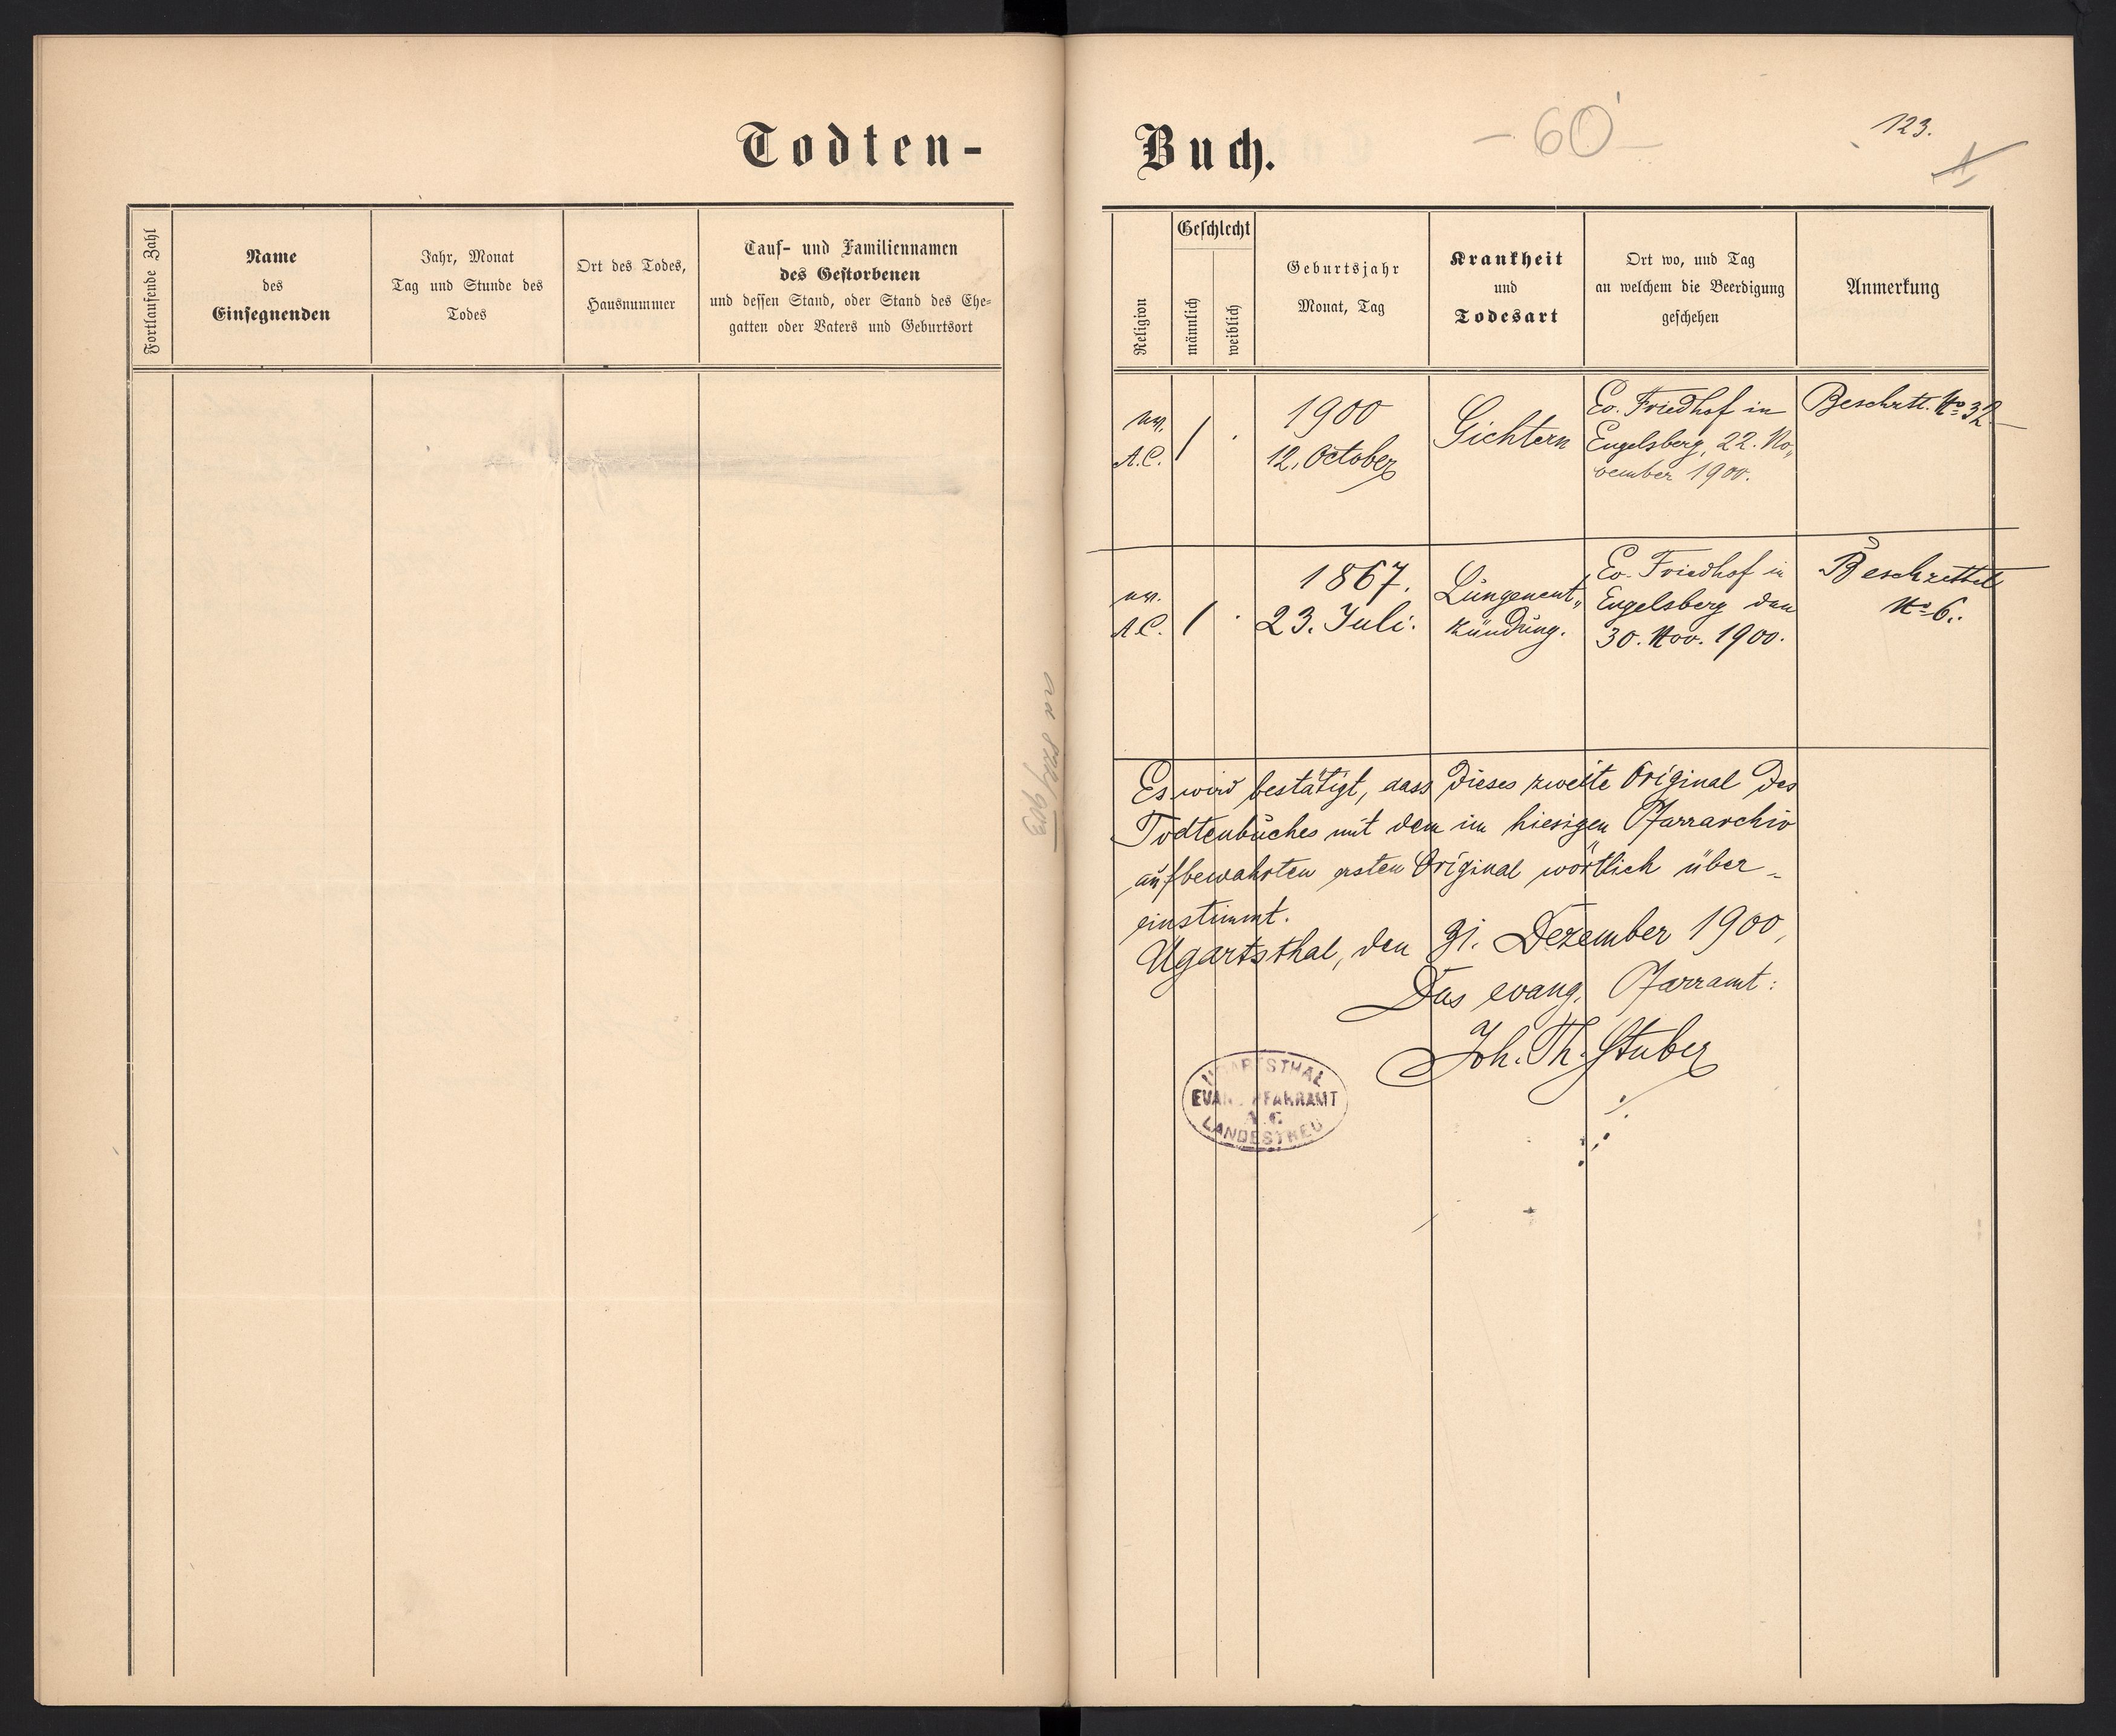 Todten-
Fortlaufende Zahl
Name
des
Einsegnenden
Jahr, Monat
Tag und Stunde des
Todes
Ort des Todes,
Hausnummer
Tauf- und Familiennamen
des Gestorbenen
und dessen Stand, oder Stand des Ehe-
gatten oder Vaters und Geburtsort
Buch.
- 60 -
123.
Religion
Geschlecht
männlich
weiblich
Geburtsjahr
Monat, Tag
Krankheit
und
Todesart
Ort wo, und Tag
an welchem die Beerdigung
geschehen
Anmerkung
A.C.
1
1900
12. October
Gichtern
Ev. Friedhof in
Engelsberg, 22. No„
vember 1900.
Beschztt. No 32
A.C.
1
1867.
23. Juli.
Lungenent„
zündung.
Ev. Friedhof in
Engelsberg den
30. Nov. 1900.
Beschzettel
No 6.
Es wird bestätigt, dass dieses zweite Original des
Todtenbuches mit dem im hiesigen Pfarrarchiv
aufbewahrten ersten Original wörtlich über-
einstimmt.
Ugartsthal, den 31. Dezember 1900,
Das evang. Pfarramt:
Joh. Th. Stuber
UGARTSTHAL
EVANG. PFARRAMT
A. C.
LANDESTREU